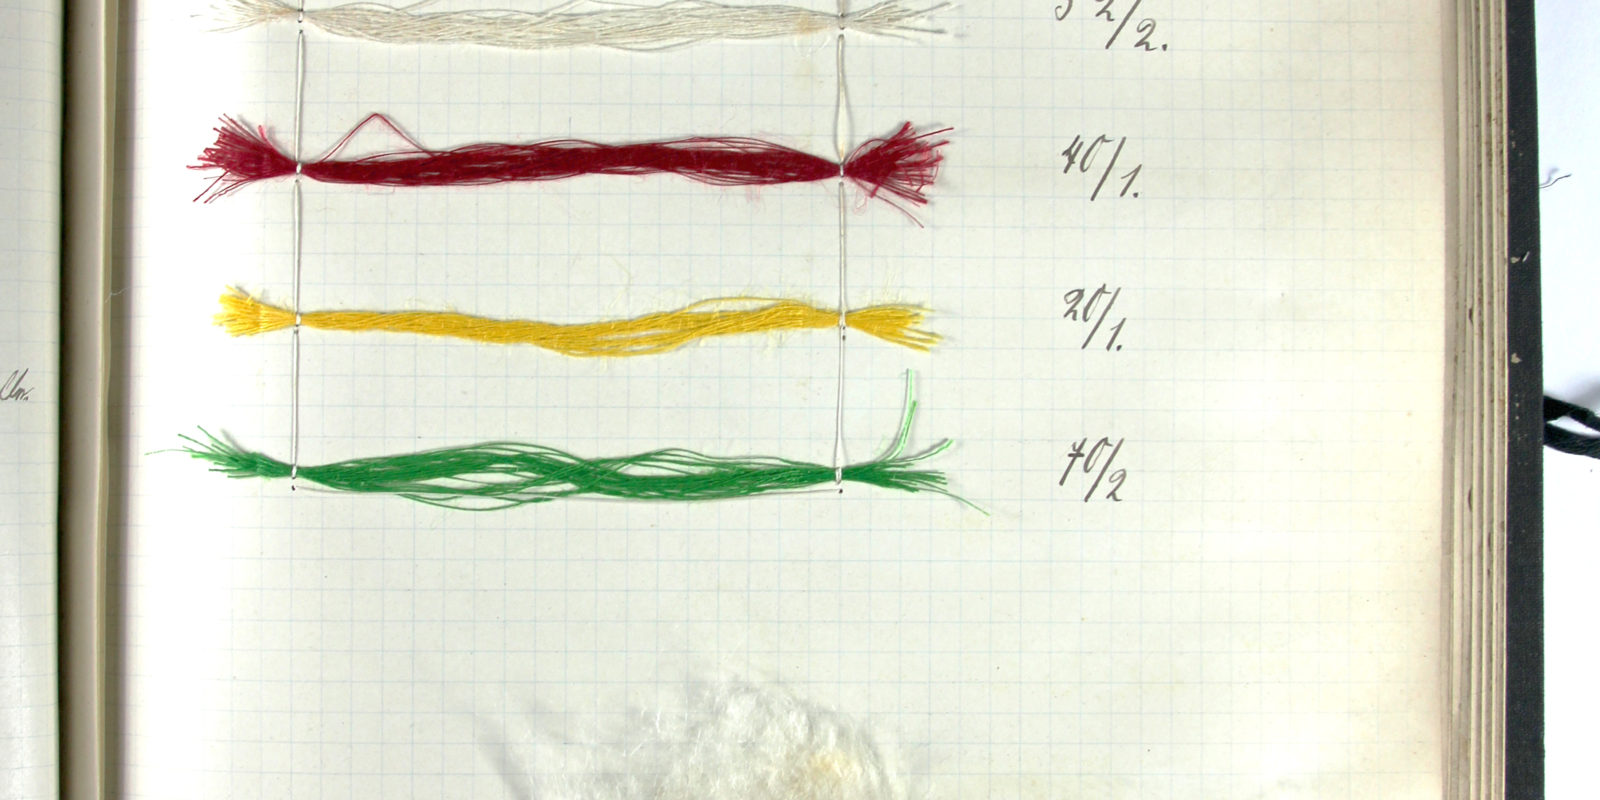 40/1.
20/1.
70/2